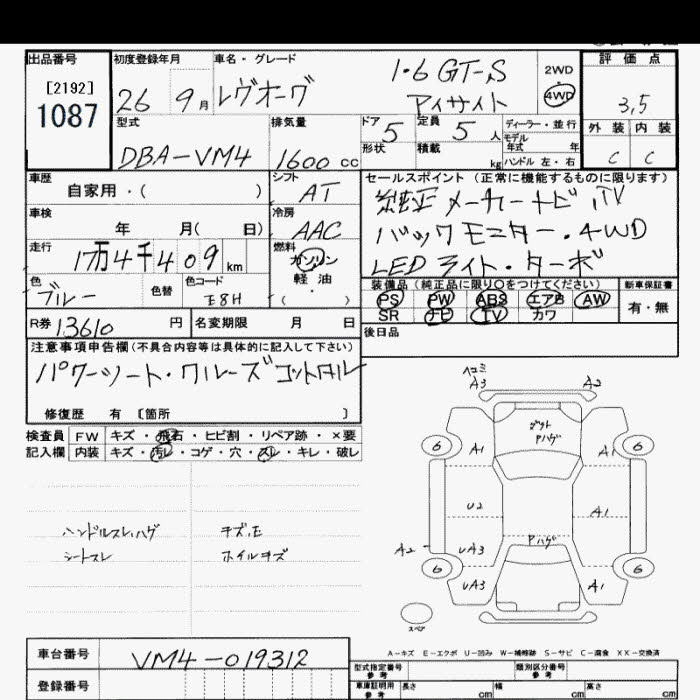 出品番号
[2192]
1087
初度登録年月
26 9月
車名・グレード
レヴオーグ 1.6 GT-S
アイサイト
2WD
4WD
評価点
3,5
外装 内装
C C
型式
DBA-VM4
排気量
1600cc
ドア 5
形状
定員 5人
積載 kg
ディーラー・並行
モデル年式 年
ハンドル 左・右
車歴
自家用・( )
シフト
AT
車検
年 月( 日)
冷房
AAC
走行
1万4千409km
燃料
ガソリン
軽油
( )
色
ブルー
色替
色コード
E8H
R券 13610 円
名変期限 月 日
セールスポイント (正常に機能するものに限ります)
純正メーカーナビ,TV
バックモニター・4WD
LEDライト・ターボ
装備品 (純正品に限り○をつけてください)
PS PW ABS エアB AW
SR ナビ TV カワ
新車保証書
有・無
後日品
注意事項申告欄 (不具合内容等は具体的に記入して下さい)
パワーシート・クルーズコントロール
修復歴 有 [箇所 ]
検査員記入欄
FW キズ・飛石・ヒビ割・リペア跡・×要
内装 キズ・汚レ・コゲ・穴・スレ・キレ・破レ
ハンドルスレ,ハゲ
シートスレ
キズ,E
ホイルキズ
ヘコミ
A3 A2
Pハゲ
6 A1 A1 6
U2 A1
Pハゲ
A2 UA3
6 6
UA3 A1
スペア
A-キズ E-エクボ U-凹み W-補修跡 S-サビ C-腐食 XX-交換済
車台番号
VM4-019312
登録番号
型式指定番号 参考
類別区分番号 参考
車庫証明用 参考
長さ cm 幅 cm 高さ cm